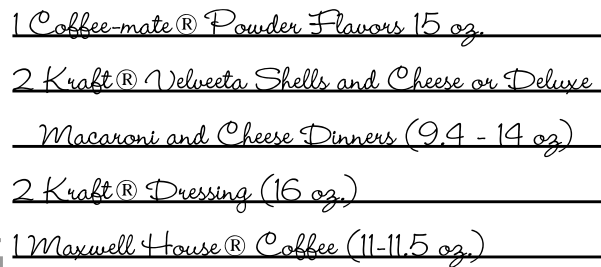 1 Coffee-mate® Powder Flavors 15 oz.
2 Kraft® Velveeta Shells and Cheese or Deluxe
Macaroni and Cheese Dinners (9.4 - 14 oz)
2 Kraft® Dressing (16 oz.)
1 Maxwell House® Coffee (11-11.5 oz.)